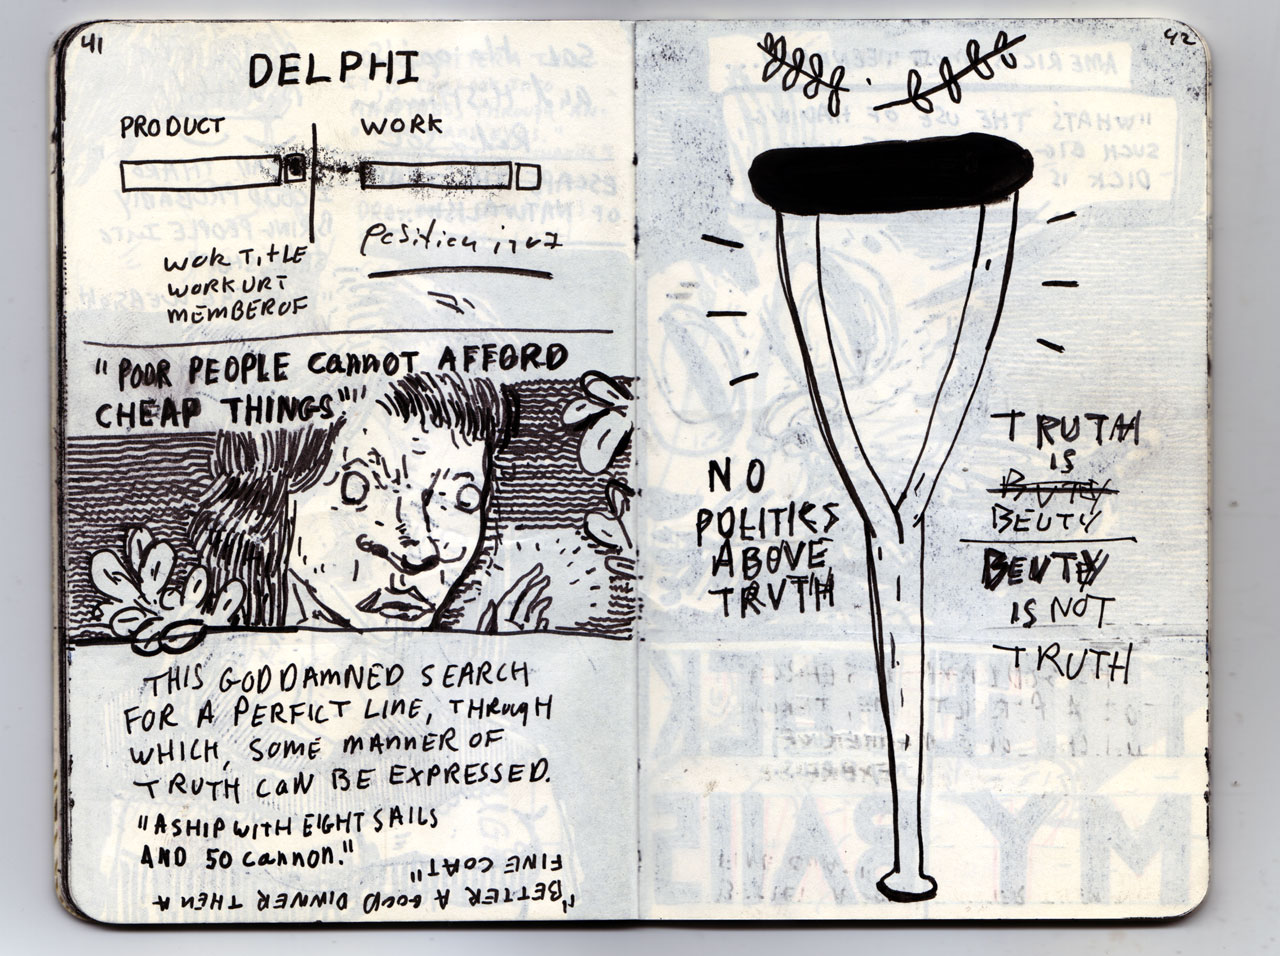 41
DELPHI
PRODUCT
WORK
WORK TITLE
WORK URI
MEMBER OF
"POOR PEOPLE CANNOT AFFORD
CHEAP THINGS"
THIS GODDAMNED SEARCH
FOR A PERFICT LINE, THROUGH
WHICH, SOME MANNER OF
TRUTH CAN BE EXPRESSED.
"A SHIP WITH EIGHT SAILS
AND 50 CANNON."
"BETTER A GOOD DINNER THEN A
FINE COAT"
42
NO
POLITICS
ABOVE
TRUTH
TRUTH
IS
BUTY
BEUTY
BEUTY
IS NOT
TRUTH